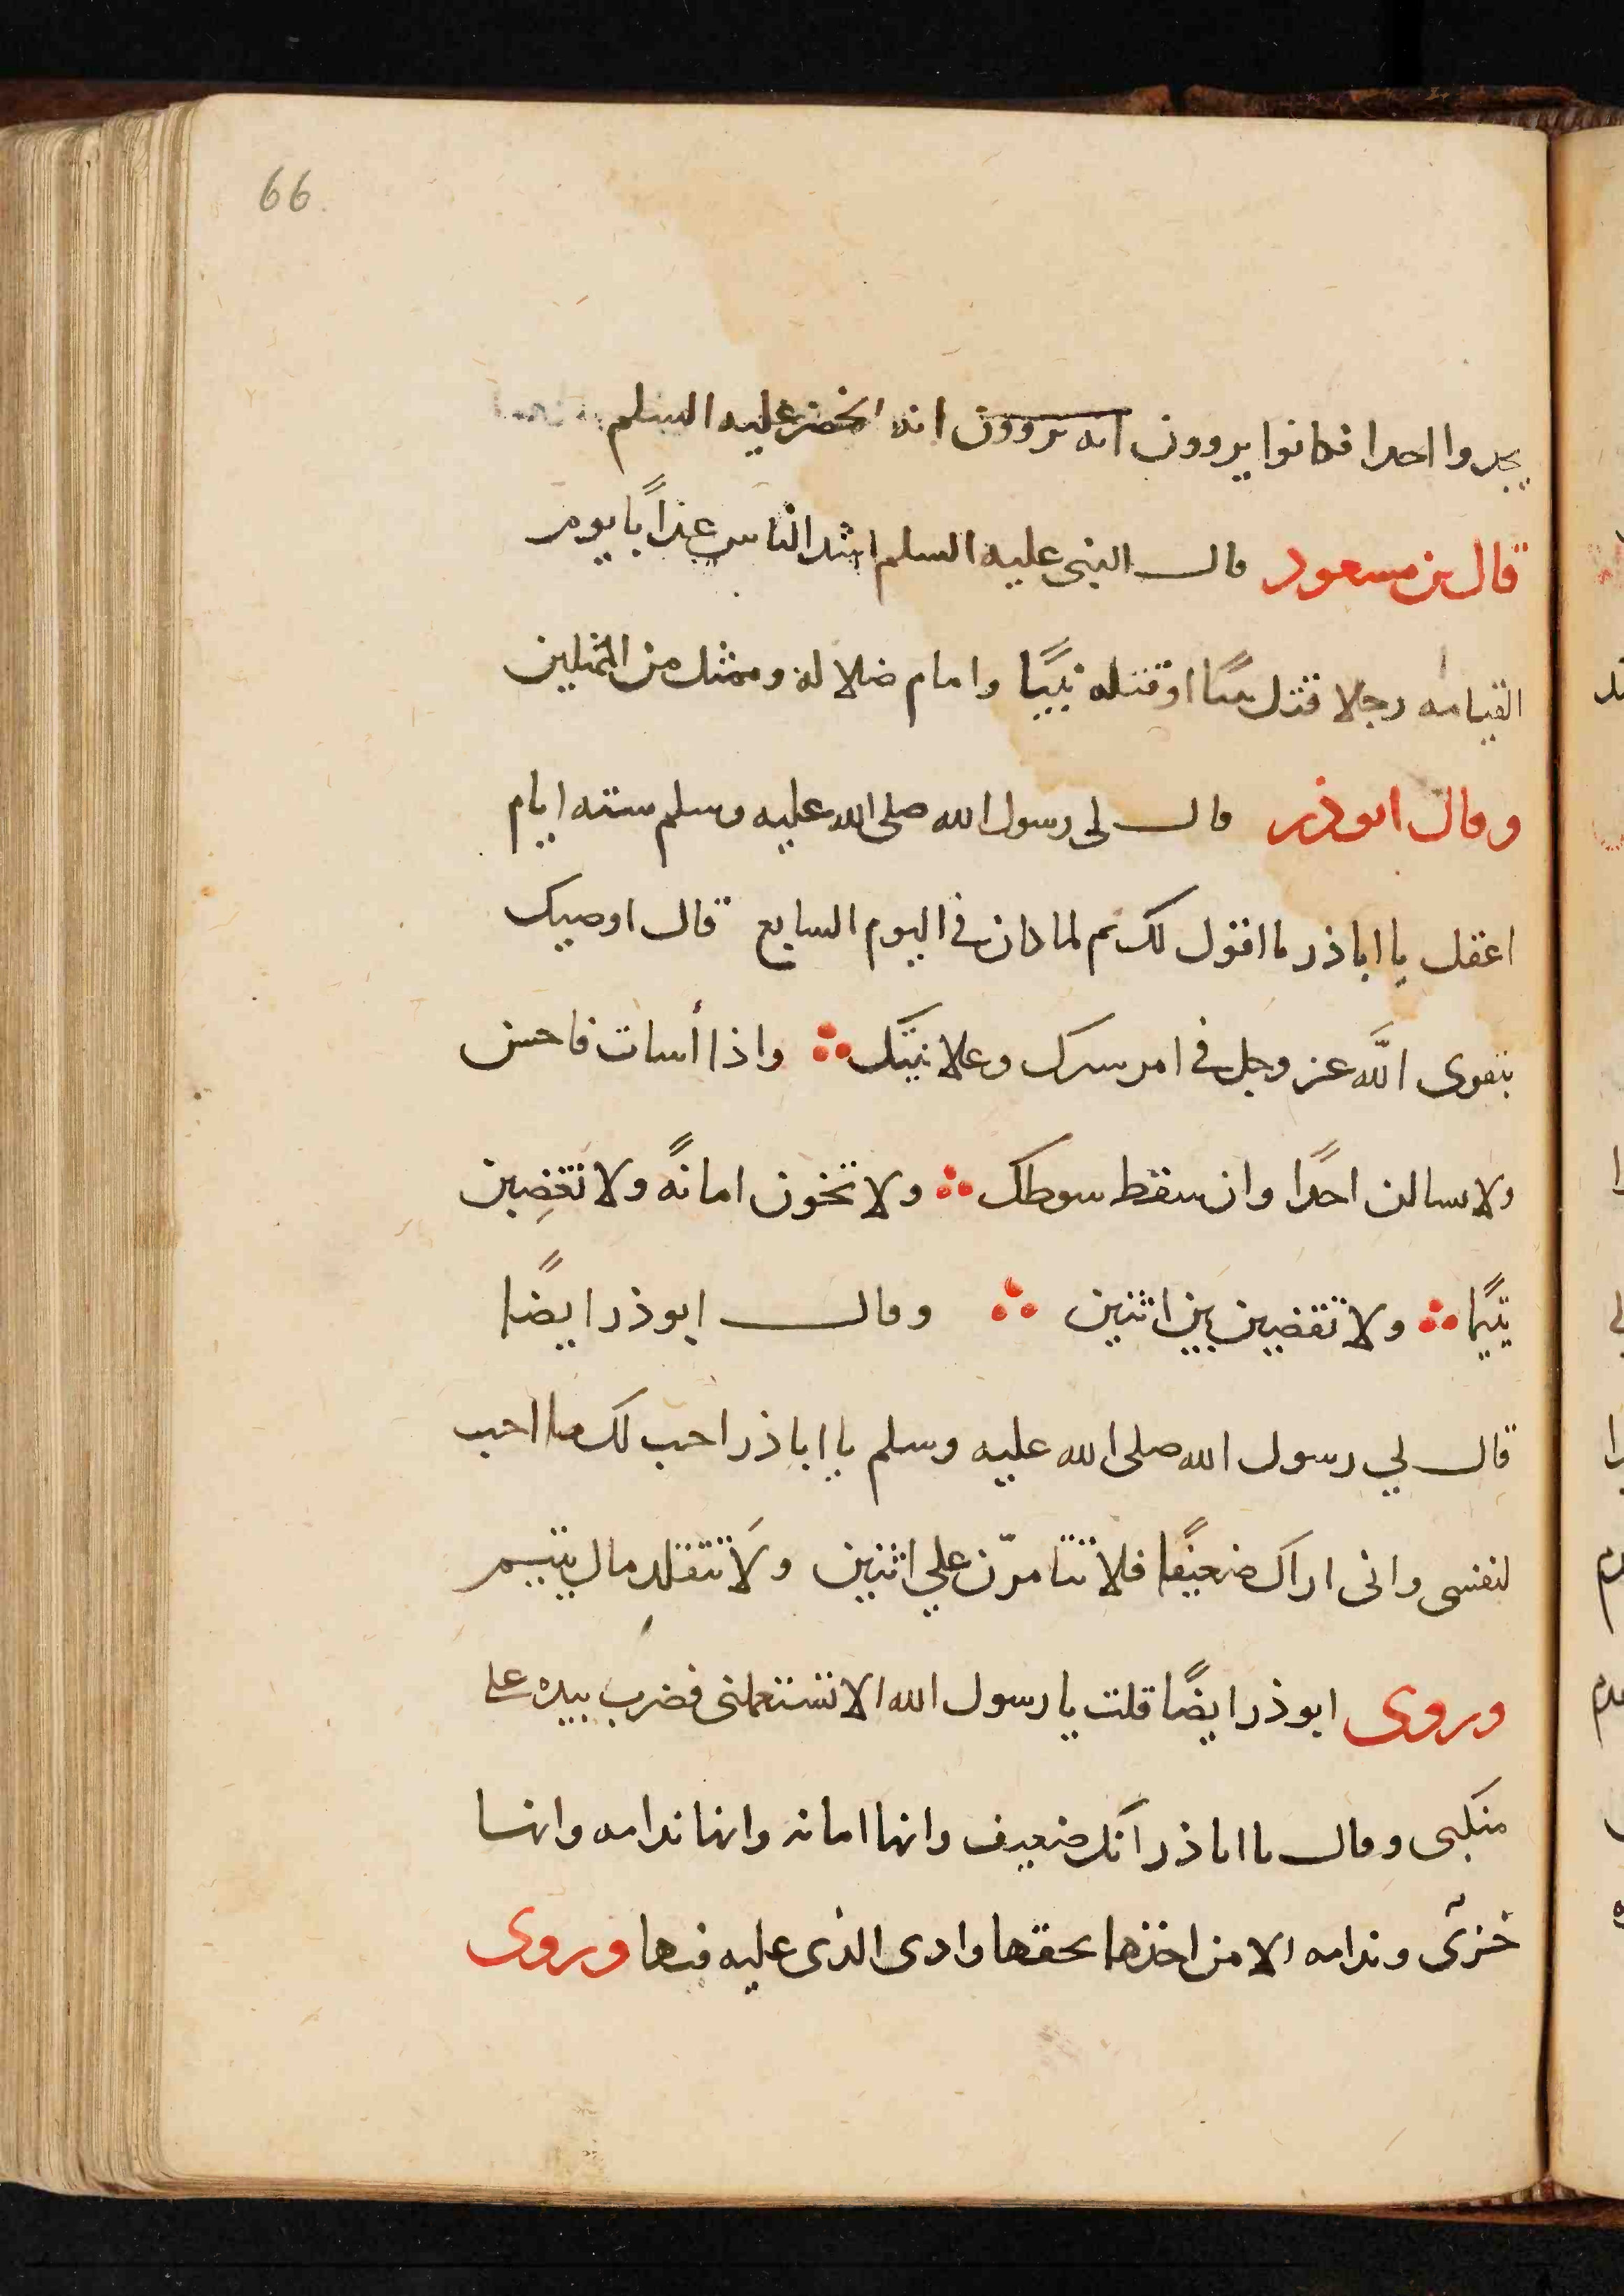 66
يجدوا احدا فكانوا يروون انه يروون انه الخضر عليه السلم
قال بن مسعود قال النبى عليه السلم اشد الناس عذابًا يوم
القيامه رجلا قتل نبيًا او قتله نبيًا وامام ضلالة وممثل من الممثلين
وقال ابوذر قال لى رسول الله صلى الله عليه وسلم سته ايام
اعقل يا اباذر ما اقول لك ثم لما كان فى اليوم السابع قال اوصيك
بتقوى اللّه عز وجل فى امر سرك وعلانيتك ∴ واذا أسات فاحسن
ولا تسالن احدًا وان سقط سوطك ∴ ولا تخون امانةً ولا تغضِبن
يتيمًا ∴ ولا تقضين بين اثنين ∴ وقال ابوذر ايضًا
قال لي رسول الله صلى الله عليه وسلم يا اباذر احب لك ما احب
لنفسى وانى اراك ضعيفًا فلا تتامرّن علي اثنين ولَا تتقلد مال يتيم
وروى ابوذر ايضًا قلت يا رسول الله الا تستعملنى فضرب بيده على
منكبى وقال يا اباذر انك ضعيف وانها امانة وانها ندامه وانها
خزى وندامه الا من اخذها بحقها وادى الذى عليه فيها وروى